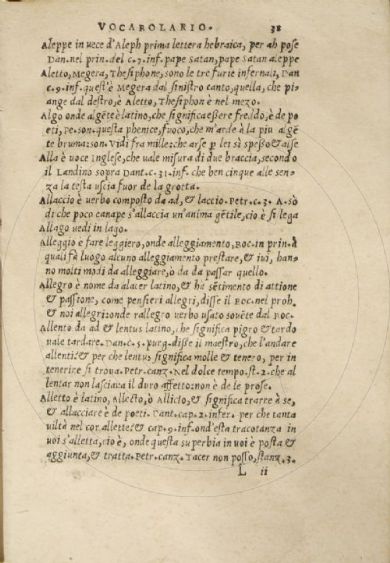 VOCABOLARIO. 38
Aleppe in uece d'Aleph prima lettera hebraica, per ah pose
Dan. nel prin. del c. 7. inf. pape Satan, pape Satan aleppe
Aletto, Megera, Thesiphone, sono le tre furie infernali, Dan
c. 9. inf. quest'è Megera dal sinistro canto, quella, che pi/
ange dal destro, è Aletto, Thesiphon è nel mezo.
Algo onde algẽte è latino, che significa essere freddo, è de po
eti, Pe. son. questa phenice, fuoco, che m'arde à la piu algẽ
te bruma: son. Vidi fra mille: che arse per lei sì spesso & alse
Alla è uoce Inglese, che uale misura di due braccia, secondo
il Landino sopra Dant. c. 31. inf. che ben cinque alle sen/
za la testa uscia fuor de la grotta.
Allaccio è uerbo composto da ad, & laccio. Petr. c. 3. A. sò
di che poco canape s'allaccia un'anima gẽtile, cio è si lega
Allago uedi in lago.
Alleggio è fare leggiero, onde alleggiamento, Boc. in prin. à
quali fù luogo alcuno alleggiamento prestare, & iui, han/
no molti modi da alleggiare, ò da passar quello.
Allegro è nome da alacer latino, & ha sẽtimento di attione
& passione, come pensieri allegri, disse il Boc. nel proh.
& noi allegri: onde rallegro uerbo usato souẽte dal Boc.
Allento da ad & lentus latino, che significa pigro & tardo
uale tardare. Dan. c. 5. purg. disse il maestro, che l'andare
allenti: & per che lentus significa molle & tenero, per in
tenerire si troua. Petr. canz. Nel dolce tempo. st. 2. che al
lentar non lasciaua il duro affetto: non è de le prose.
Alletto è latino, Allecto, ò Allicio, & significa trarre à se,
& allacciare è de poeti. Dant. cap. 2. infer. per che tanta
uiltà nel cor allette: & cap. 9. inf. ond'esta tracotanza in
uoi s'alletta, cio è, onde questa superbia in uoi è posta &
aggiunta, & tratta. Petr. canz. Tacer non posso, stanz. 3.
L ii